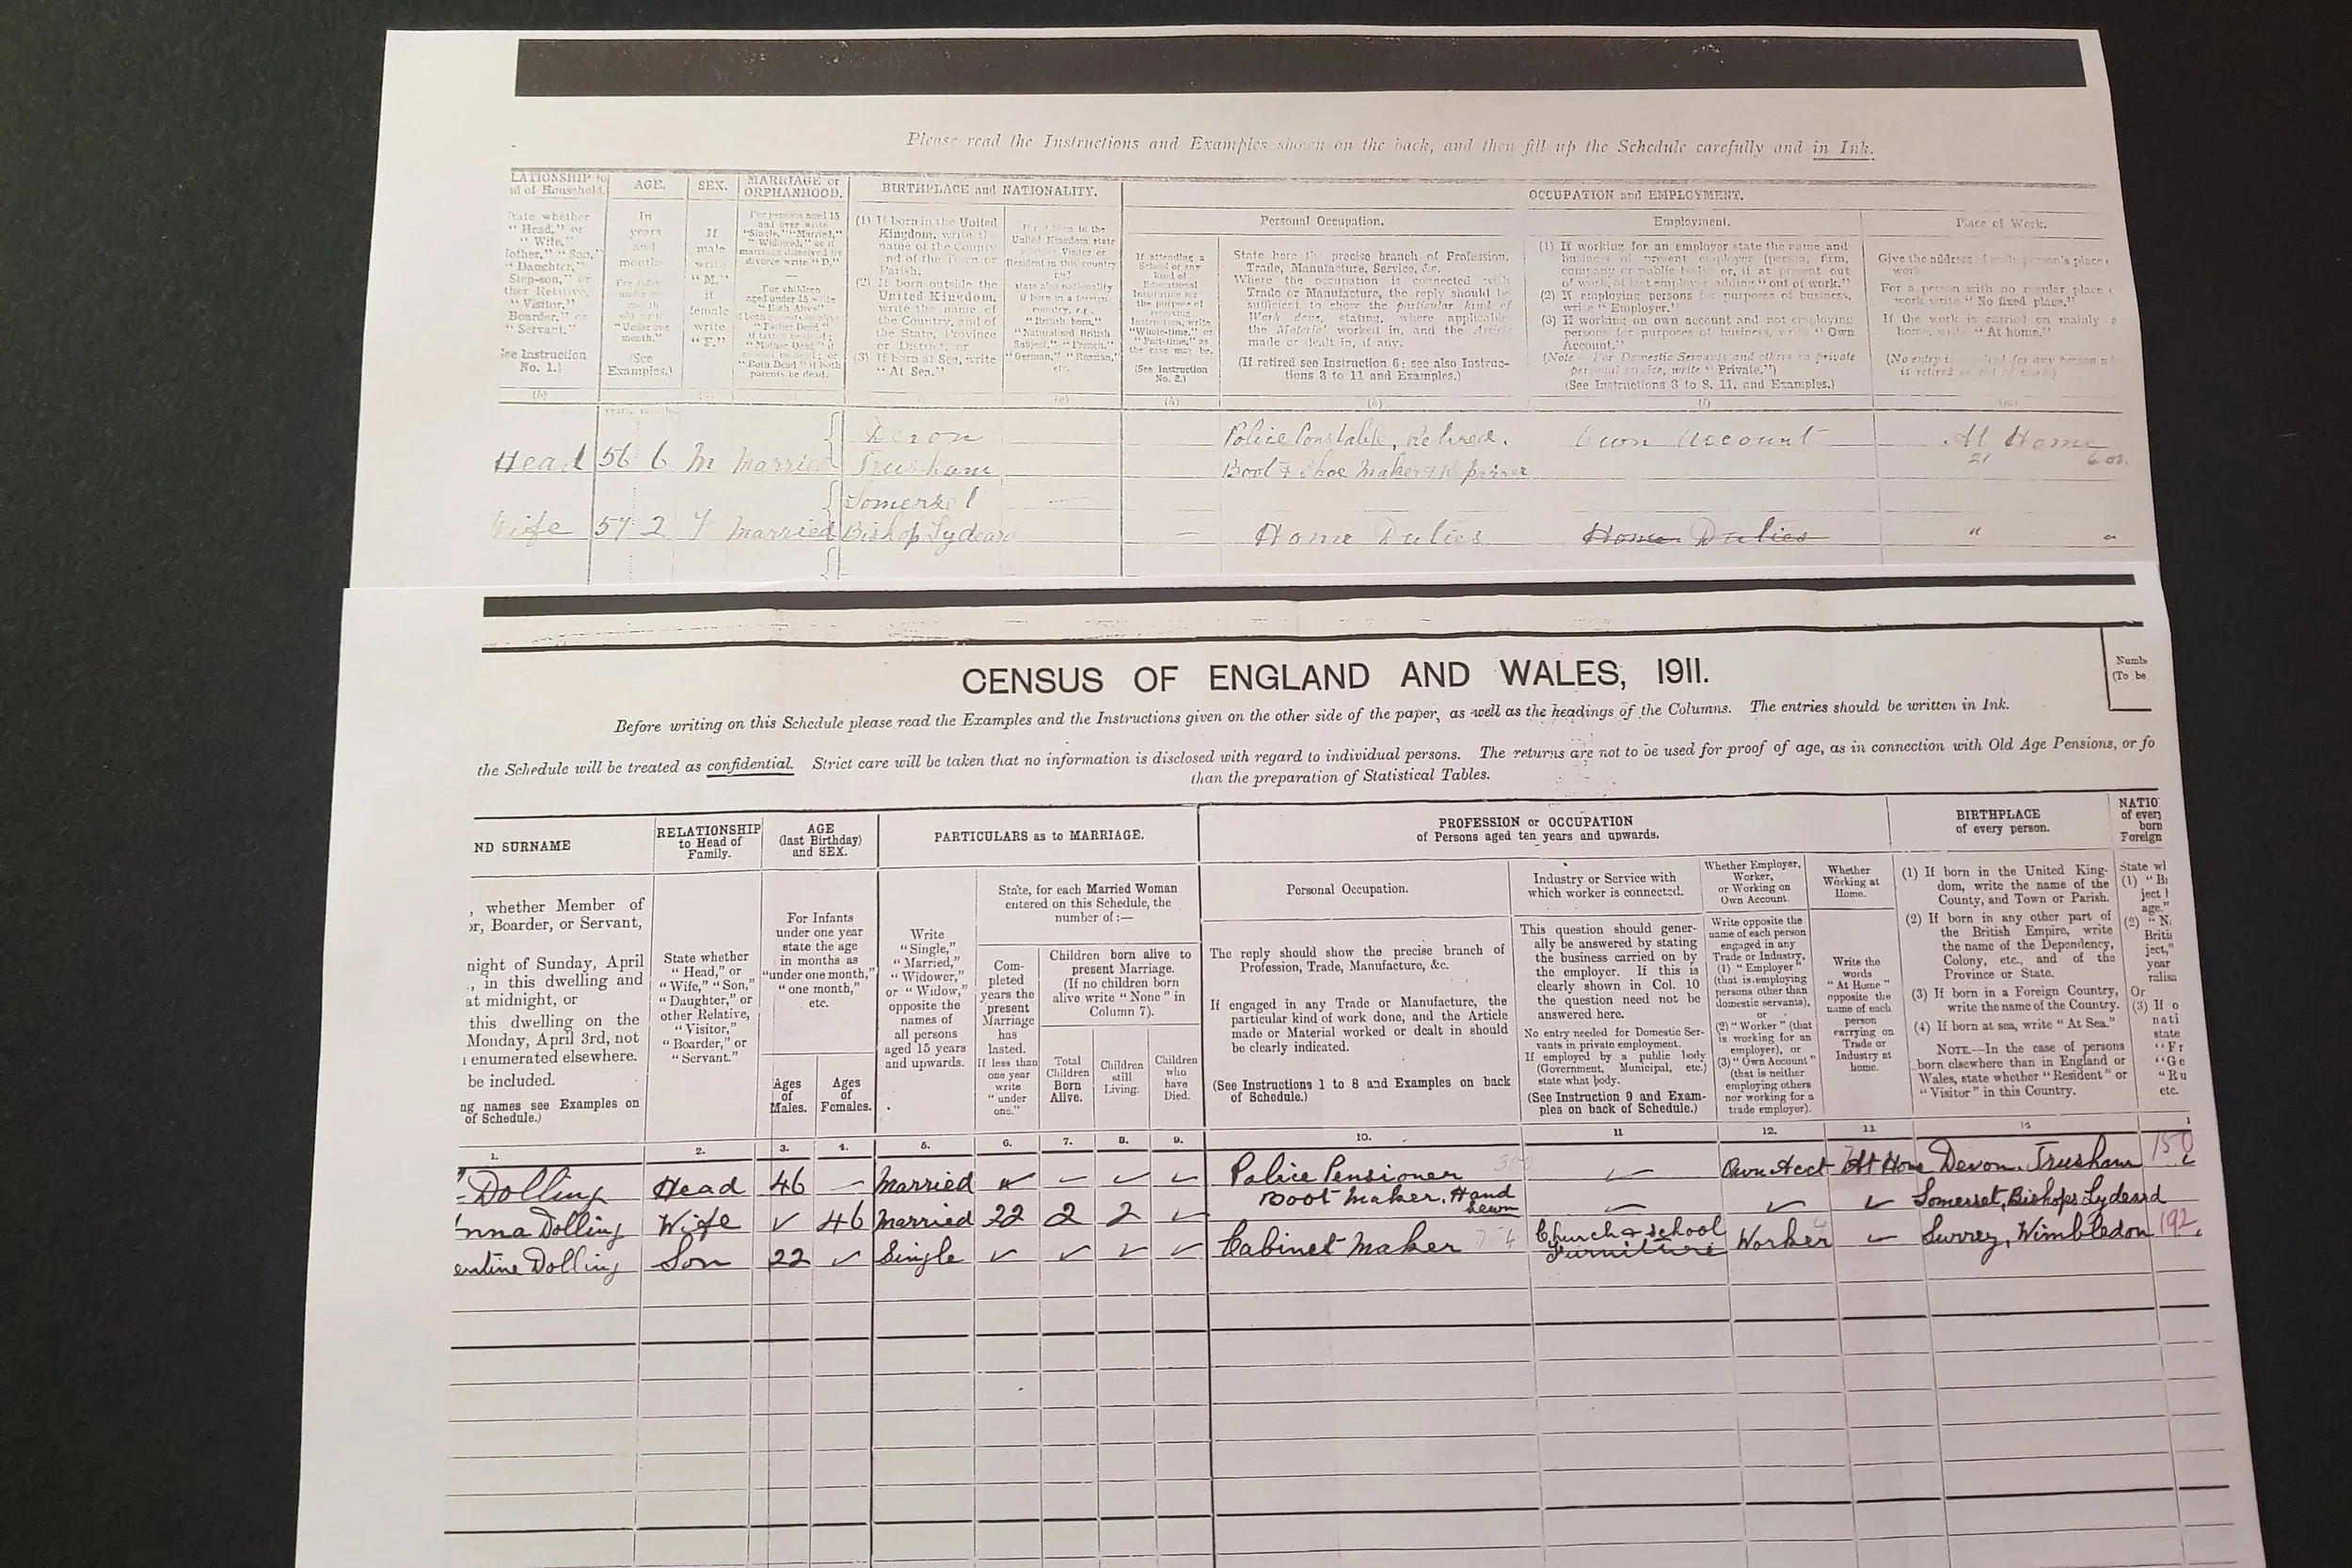 Please read the Instructions and Examples shown on the back, and then fill up the Schedule carefully and in Ink.
LATIONSHIP to
d of Household.
AGE.
SEX.
MARRIAGE or
ORPHANHOOD.
BIRTHPLACE and NATIONALITY.
OCCUPATION and EMPLOYMENT.
Personal Occupation.
Employment.
Place of Work.
tate whether
"Head," or
"Wife,"
other," "Son,"
"Daughter,"
Step-son," or
ther Relative,
"Visitor,"
Boarder," or
"Servant."
ee Instruction
No. 1.)
In
years
and
months.
(See
Examples.)
If
male
write
"M."
if
female
write
"F."
For persons aged 15
and over write
"Single," "Married,"
"Widowed," or if
marriage dissolved by
divorce write "D."
For children
aged under 15 write
"Both Alive"
parents be dead.
(1) If born in the United
Kingdom, write the
name of the County
and of the Town or
Parish.
(2) If born outside the
United Kingdom,
write the name of
the Country, and of
the State, Province
or District, or
(3) If born at Sea, write
"At Sea."
If attending a
School or any
kind of
Educational
Institution for
the purpose of
receiving
Instruction, write
"Whole-time," or
"Part-time," as
the case may be.
(See Instruction
No. 2.)
State here the precise branch of Profession,
Trade, Manufacture, Service, &c.
Where the occupation is connected with
Trade or Manufacture, the reply should be
sufficient to show the particular kind of
Work done, stating, where applicable
the Material worked in, and the Article
made or dealt in, if any.
(If retired see Instruction 6; see also Instruc-
tions 3 to 11 and Examples.)
(1) If working for an employer state the name and
business of present employer (person, firm,
company or public body) or, if at present out
of work, of last employer adding "out of work."
(2) If employing persons for purposes of business,
write "Employer."
(3) If working on own account and not employing
persons for purposes of business, write "Own
Account."
(Note.—For Domestic Servants and others in private
personal service, write "Private.")
(See Instructions 3 to 8, 11, and Examples.)
Give the address of each person's place
work
For a person with no regular place
work write "No fixed place."
If the work is carried on mainly a
home, write "At home."
Head 56 6 M Married Devon Trusham Police Constable, Retired. Own Account At Home
Boot & Shoe Maker & Repairer
Wife 57 2 F Married Somerset Bishop Lydeard — Home Duties Home Duties " "
CENSUS OF ENGLAND AND WALES, 1911.
Numb
(To be
Before writing on this Schedule please read the Examples and the Instructions given on the other side of the paper, as well as the headings of the Columns. The entries should be written in Ink.
the Schedule will be treated as confidential. Strict care will be taken that no information is disclosed with regard to individual persons. The returns are not to be used for proof of age, as in connection with Old Age Pensions, or fo
than the preparation of Statistical Tables.
ND SURNAME
RELATIONSHIP
to Head of
Family.
AGE
(last Birthday)
and SEX.
PARTICULARS as to MARRIAGE.
PROFESSION or OCCUPATION
of Persons aged ten years and upwards.
BIRTHPLACE
of every person.
NATIO
of every
born
Foreign
, whether Member of
or, Boarder, or Servant,
night of Sunday, April
., in this dwelling and
at midnight, or
this dwelling on the
Monday, April 3rd, not
enumerated elsewhere.
be included.
ng names see Examples on
of Schedule.)
State whether
"Head," or
"Wife," "Son,"
"Daughter," or
other Relative,
"Visitor,"
"Boarder," or
"Servant."
For Infants
under one year
state the age
in months as
"under one month,"
"one month,"
etc.
Ages
of
Males.
Ages
of
Females.
Write
"Single,"
"Married,"
"Widower,"
or "Widow,"
opposite the
names of
all persons
aged 15 years
and upwards.
State, for each Married Woman
entered on this Schedule, the
number of:—
Com-
pleted
years the
present
Marriage
has
lasted.
If less than
one year
write
"under
one."
Children born alive to
present Marriage.
(If no children born
alive write "None" in
Column 7).
Total
Children
Born
Alive.
Children
still
Living.
Children
who
have
Died.
Personal Occupation.
The reply should show the precise branch of
Profession, Trade, Manufacture, &c.
If engaged in any Trade or Manufacture, the
particular kind of work done, and the Article
made or Material worked or dealt in should
be clearly indicated.
(See Instructions 1 to 8 and Examples on back
of Schedule.)
Industry or Service with
which worker is connected.
This question should gener-
ally be answered by stating
the business carried on by
the employer. If this is
clearly shown in Col. 10
the question need not be
answered here.
No entry needed for Domestic Ser-
vants in private employment.
If employed by a public body
(Government, Municipal, etc.)
state what body.
(See Instruction 9 and Exam-
ples on back of Schedule.)
Whether Employer,
Worker,
or Working on
Own Account.
Write opposite the
name of each person
engaged in any
Trade or Industry,
(1) "Employer"
(that is employing
persons other than
domestic servants),
or
(2) "Worker" (that
is working for an
employer), or
(3) "Own Account"
(that is neither
employing others
nor working for a
trade employer).
Whether
Working at
Home.
Write the
words
"At Home"
opposite the
name of each
person
carrying on
Trade or
Industry at
home.
(1) If born in the United King-
dom, write the name of the
County, and Town or Parish.
(2) If born in any other part of
the British Empire, write
the name of the Dependency,
Colony, etc., and of the
Province or State.
(3) If born in a Foreign Country,
write the name of the Country.
(4) If born at sea, write "At Sea."
NOTE.—In the case of persons
born elsewhere than in England or
Wales, state whether "Resident" or
"Visitor" in this Country.
State wl
(1) "B
ject l
age."
(2) "N
Briti
ject,"
year
ralisa
Or
(3) If o
nati
state
"Fr
"Ge
"Ru
etc.
1. 2. 3. 4. 5. 6. 7. 8. 9. 10. 11 12. 13. 14
Dolling Head 46 — Married Police Pensioner Own Acct At Home Devon, Trusham 150
Boot Maker, Hand Sewn
nna Dolling Wife 46 Married 22 2 2 Somerset, Bishops Lydeard
entine Dolling Son 22 Single Cabinet Maker Church & school Furniture Worker Surrey, Wimbledon 192